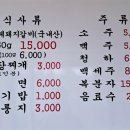 식사류
돼지갈비(국내산)
00g 15,000
(100g 6,000)
찌개 3,000
면 6,000
기밥 1,000
룽지 3,000
주류
소주 5,
맥주 5,
청하
백세주 8
복분자
음료수